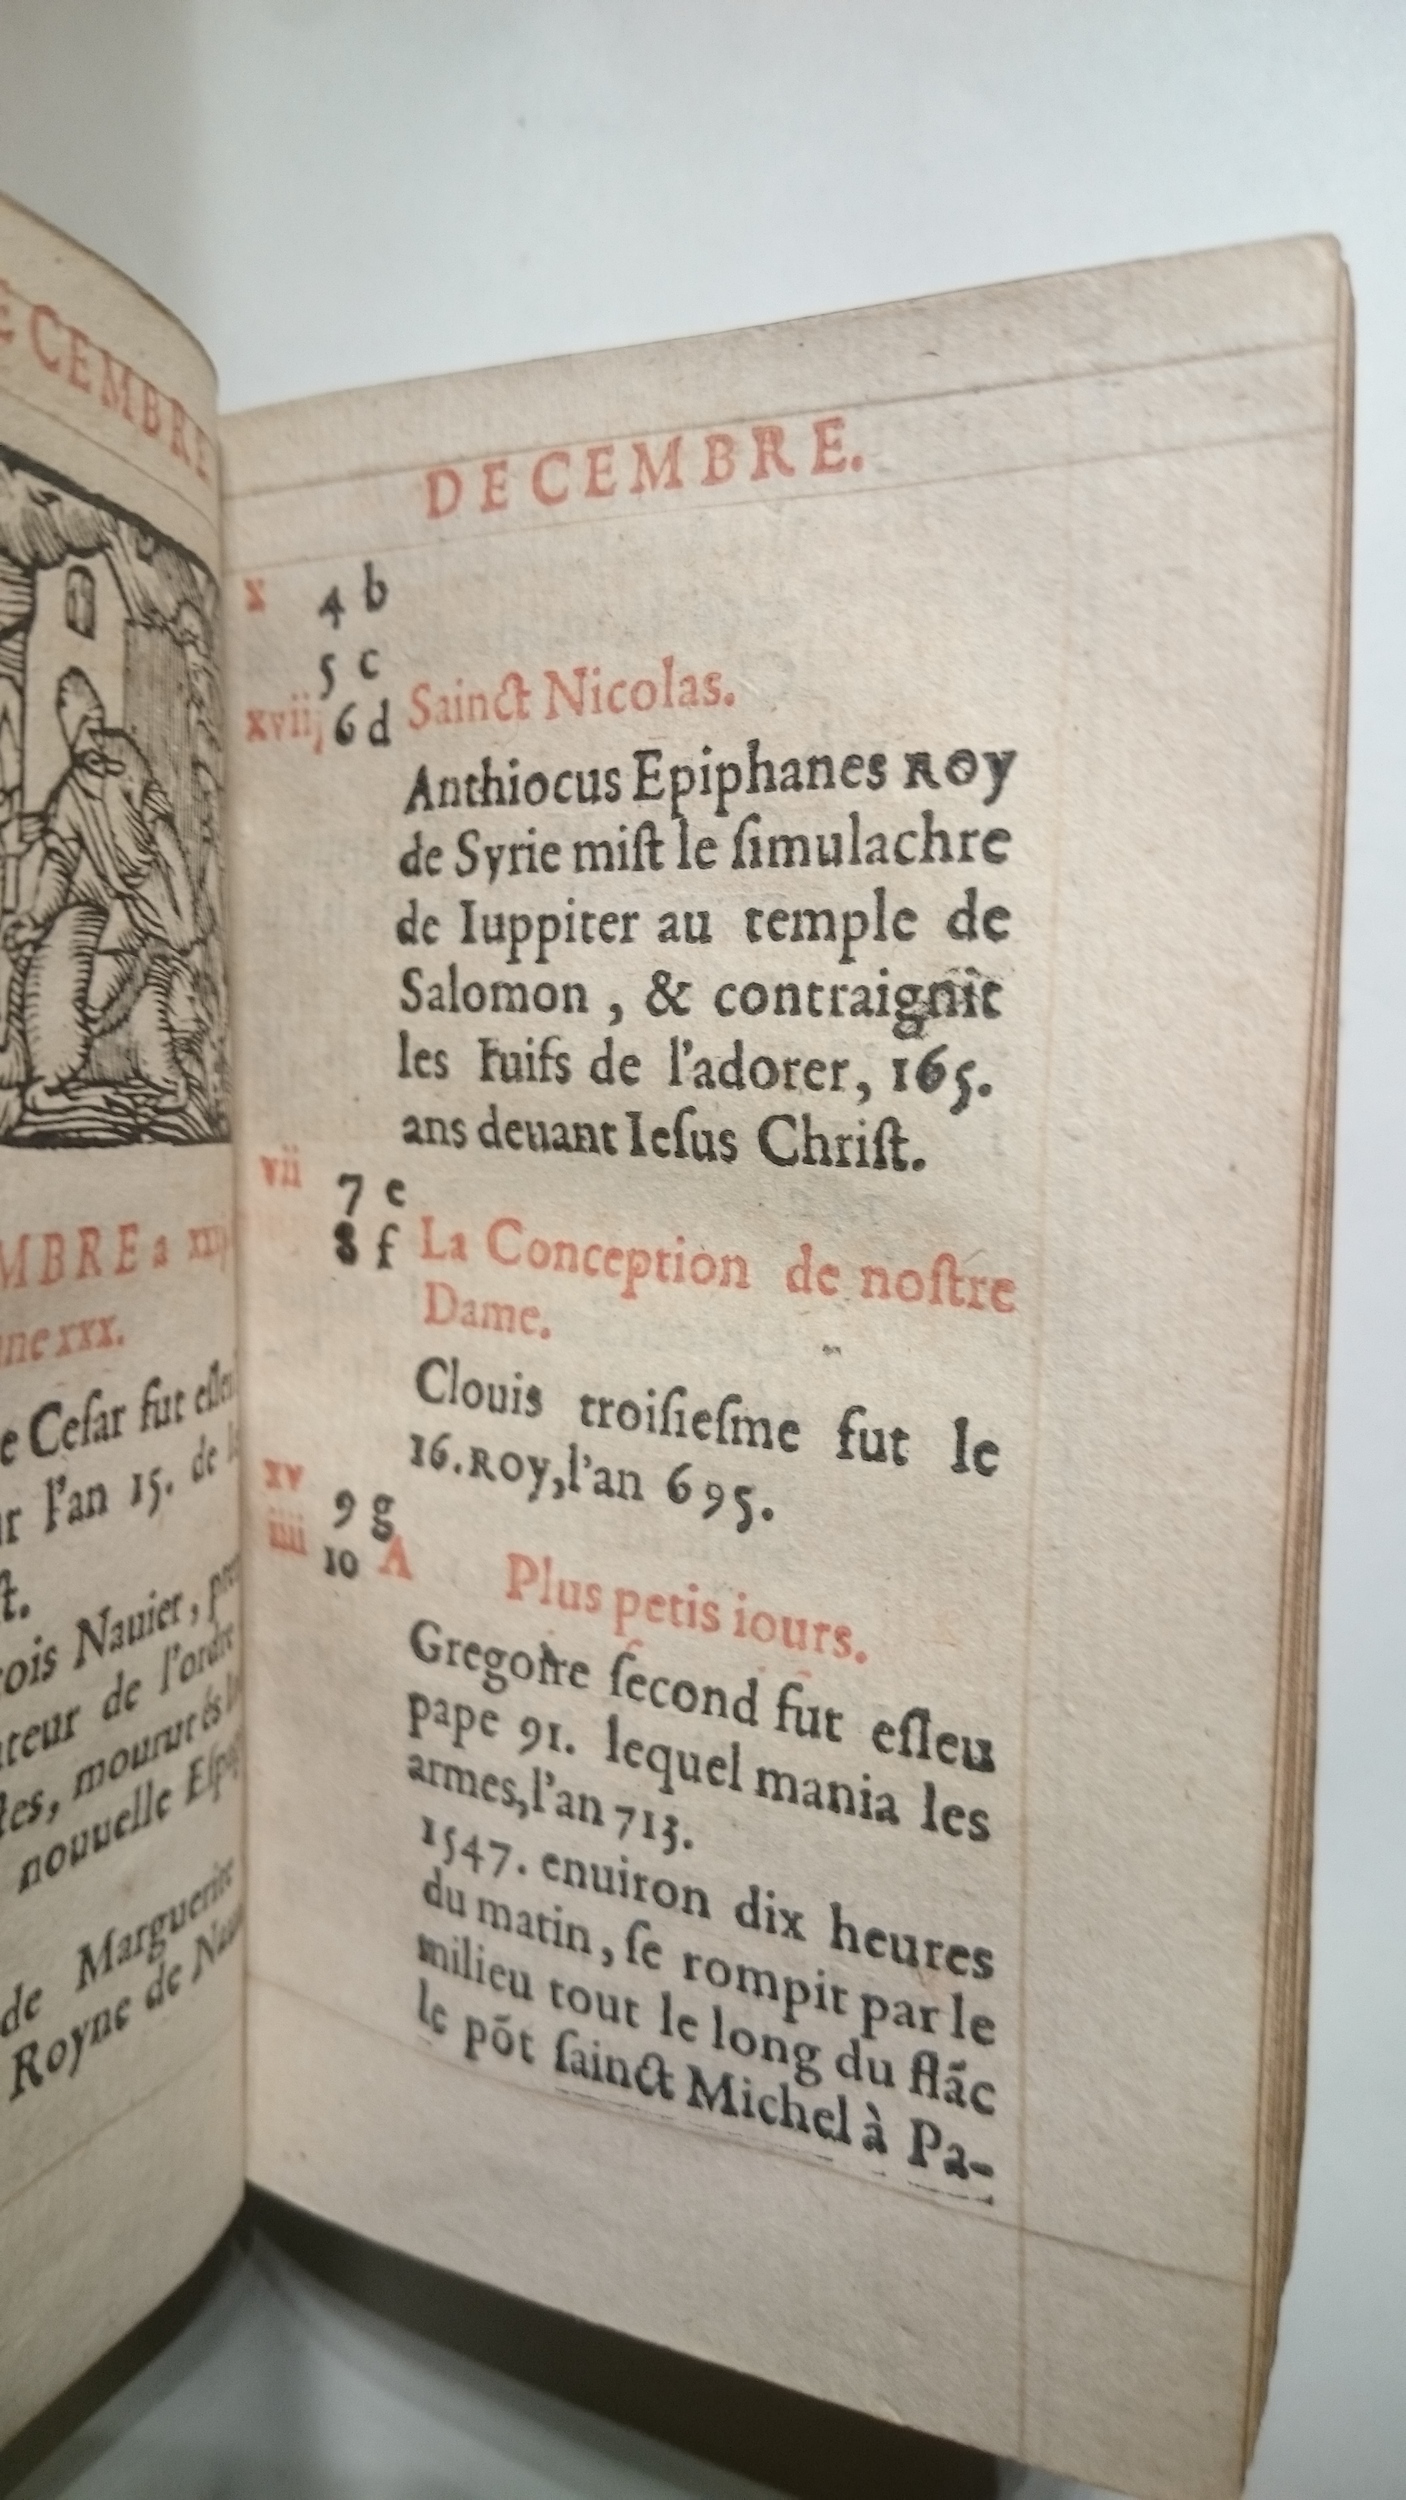 ECEMBRE
MBRE a
ne xxx.
e Ceſar fut
r l'an 15. de
ſt.
ois Nauier,
teur de l'ordre
les, mourut és
nouuelle
de Marguerite
Royne de
DECEMBRE.
x 4 b
5 c
xviij 6 d Sainct Nicolas.
Anthiocus Epiphanes ROY
de Syrie miſt le ſimulachre
de Iuppiter au temple de
Salomon , & contraignit
les Iuifs de l'adorer, 165.
ans deuant Ieſus Chriſt.
vii 7 e
8 f La Conception de noſtre
Dame.
Clouis troiſieſme fut le
16. ROY, l'an 695.
xv 9 g
iiii 10 A Plus petis iours.
Gregoire ſecond fut eſleu
pape 91. lequel mania les
armes, l'an 713.
1547. enuiron dix heures
du matin, ſe rompit par le
milieu tout le long du flãc
le põt ſainct Michel à Pa-